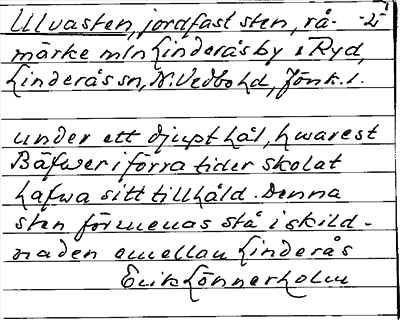 Ulvasten, jordfast sten, rå- -2-
märke mln Linderås by o Ryd,
Linderås sn, N. Vedbo hd, Jönk. l.
under ett djupt hål, hwarest
Bäfwer i förra tider skolat
hafwa sitt tillhåld. Denna
sten förmenas stå i skild-
naden emellan Linderås
Erik Lönnerholm